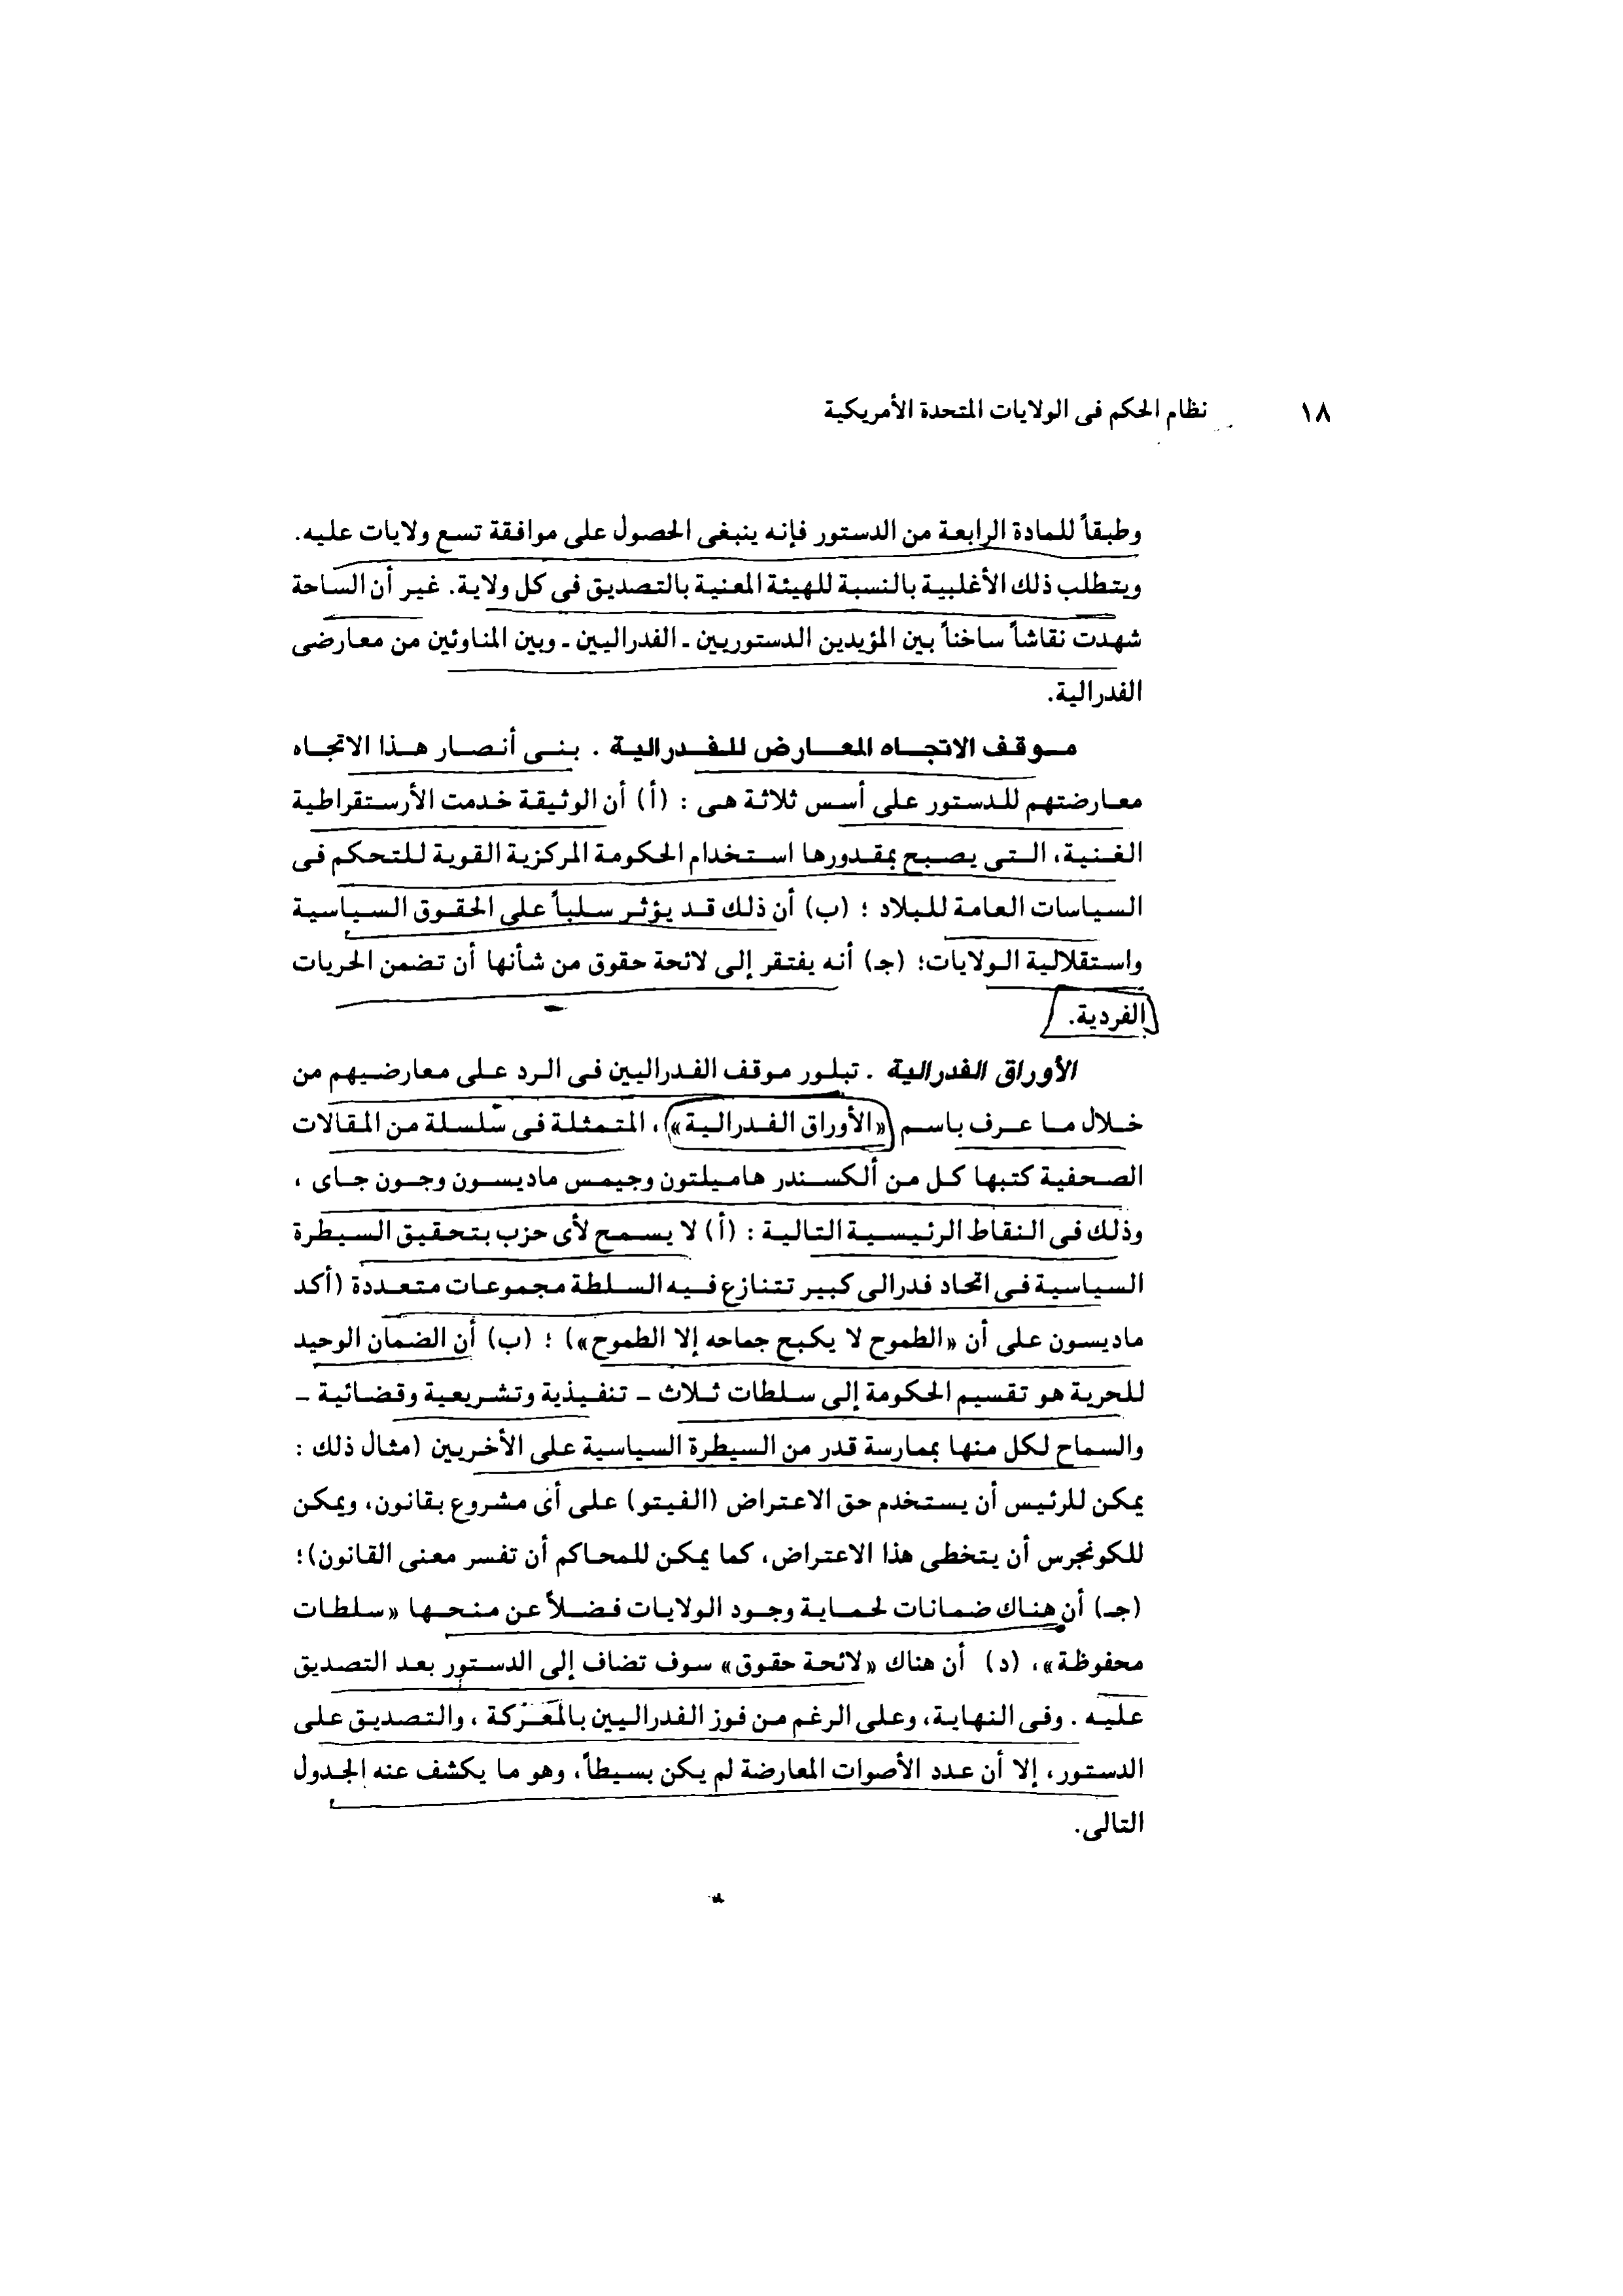 ١٨ نظام الحكم فى الولايات المتحدة الأمريكية
وطبقاً للمادة الرابعة من الدستور فإنه ينبغى الحصول على موافقة تسع ولايات عليه.
ويتطلب ذلك الأغلبية بالنسبة للهيئة المعنية بالتصديق فى كل ولاية. غير أن الساحة
شهدت نقاشاً ساخناً بين المؤيدين الدستوريين ـ الفدراليين ـ وبين المناوئين من معارضى
الفدرالية.
موقف الاتجاه المعارض للفدرالية . بنى أنصار هذا الاتجاه
معارضتهم للدستور على أسس ثلاثة هى : (أ) أن الوثيقة خدمت الأرستقراطية
الغنية، التى يصبح بمقدورها استخدام الحكومة المركزية القوية للتحكم فى
السياسات العامة للبلاد ؛ (ب) أن ذلك قد يؤثر سلباً على الحقوق السياسية
واستقلالية الولايات؛ (جـ) أنه يفتقر إلى لائحة حقوق من شأنها أن تضمن الحريات
الفردية.
الأوراق الفدرالية . تبلور موقف الفدراليين فى الرد على معارضيهم من
خلال ما عرف باسم «الأوراق الفدرالية»، المتمثلة فى سلسلة من المقالات
الصحفية كتبها كل من ألكسندر هاميلتون وجيمس ماديسون وجون جاى ،
وذلك فى النقاط الرئيسية التالية : (أ) لا يسمح لأى حزب بتحقيق السيطرة
السياسية فى اتحاد فدرالى كبير تتنازع فيه السلطة مجموعات متعددة (أكد
ماديسون على أن «الطموح لا يكبح جماحه إلا الطموح») ؛ (ب) أن الضمان الوحيد
للحرية هو تقسيم الحكومة إلى سلطات ثلاث – تنفيذية وتشريعية وقضائية –
والسماح لكل منها بممارسة قدر من السيطرة السياسية على الأخريين (مثال ذلك :
يمكن للرئيس أن يستخدم حق الاعتراض (الفيتو) على أى مشروع بقانون، ويمكن
للكونجرس أن يتخطى هذا الاعتراض، كما يمكن للمحاكم أن تفسر معنى القانون)؛
(جـ) أن هناك ضمانات لحماية وجود الولايات فضلاً عن منحها «سلطات
محفوظة»، (د) أن هناك «لائحة حقوق» سوف تضاف إلى الدستور بعد التصديق
عليه . وفى النهاية، وعلى الرغم من فوز الفدراليين بالمعركة ، والتصديق على
الدستور، إلا أن عدد الأصوات المعارضة لم يكن بسيطاً، وهو ما يكشف عنه الجدول
التالى.